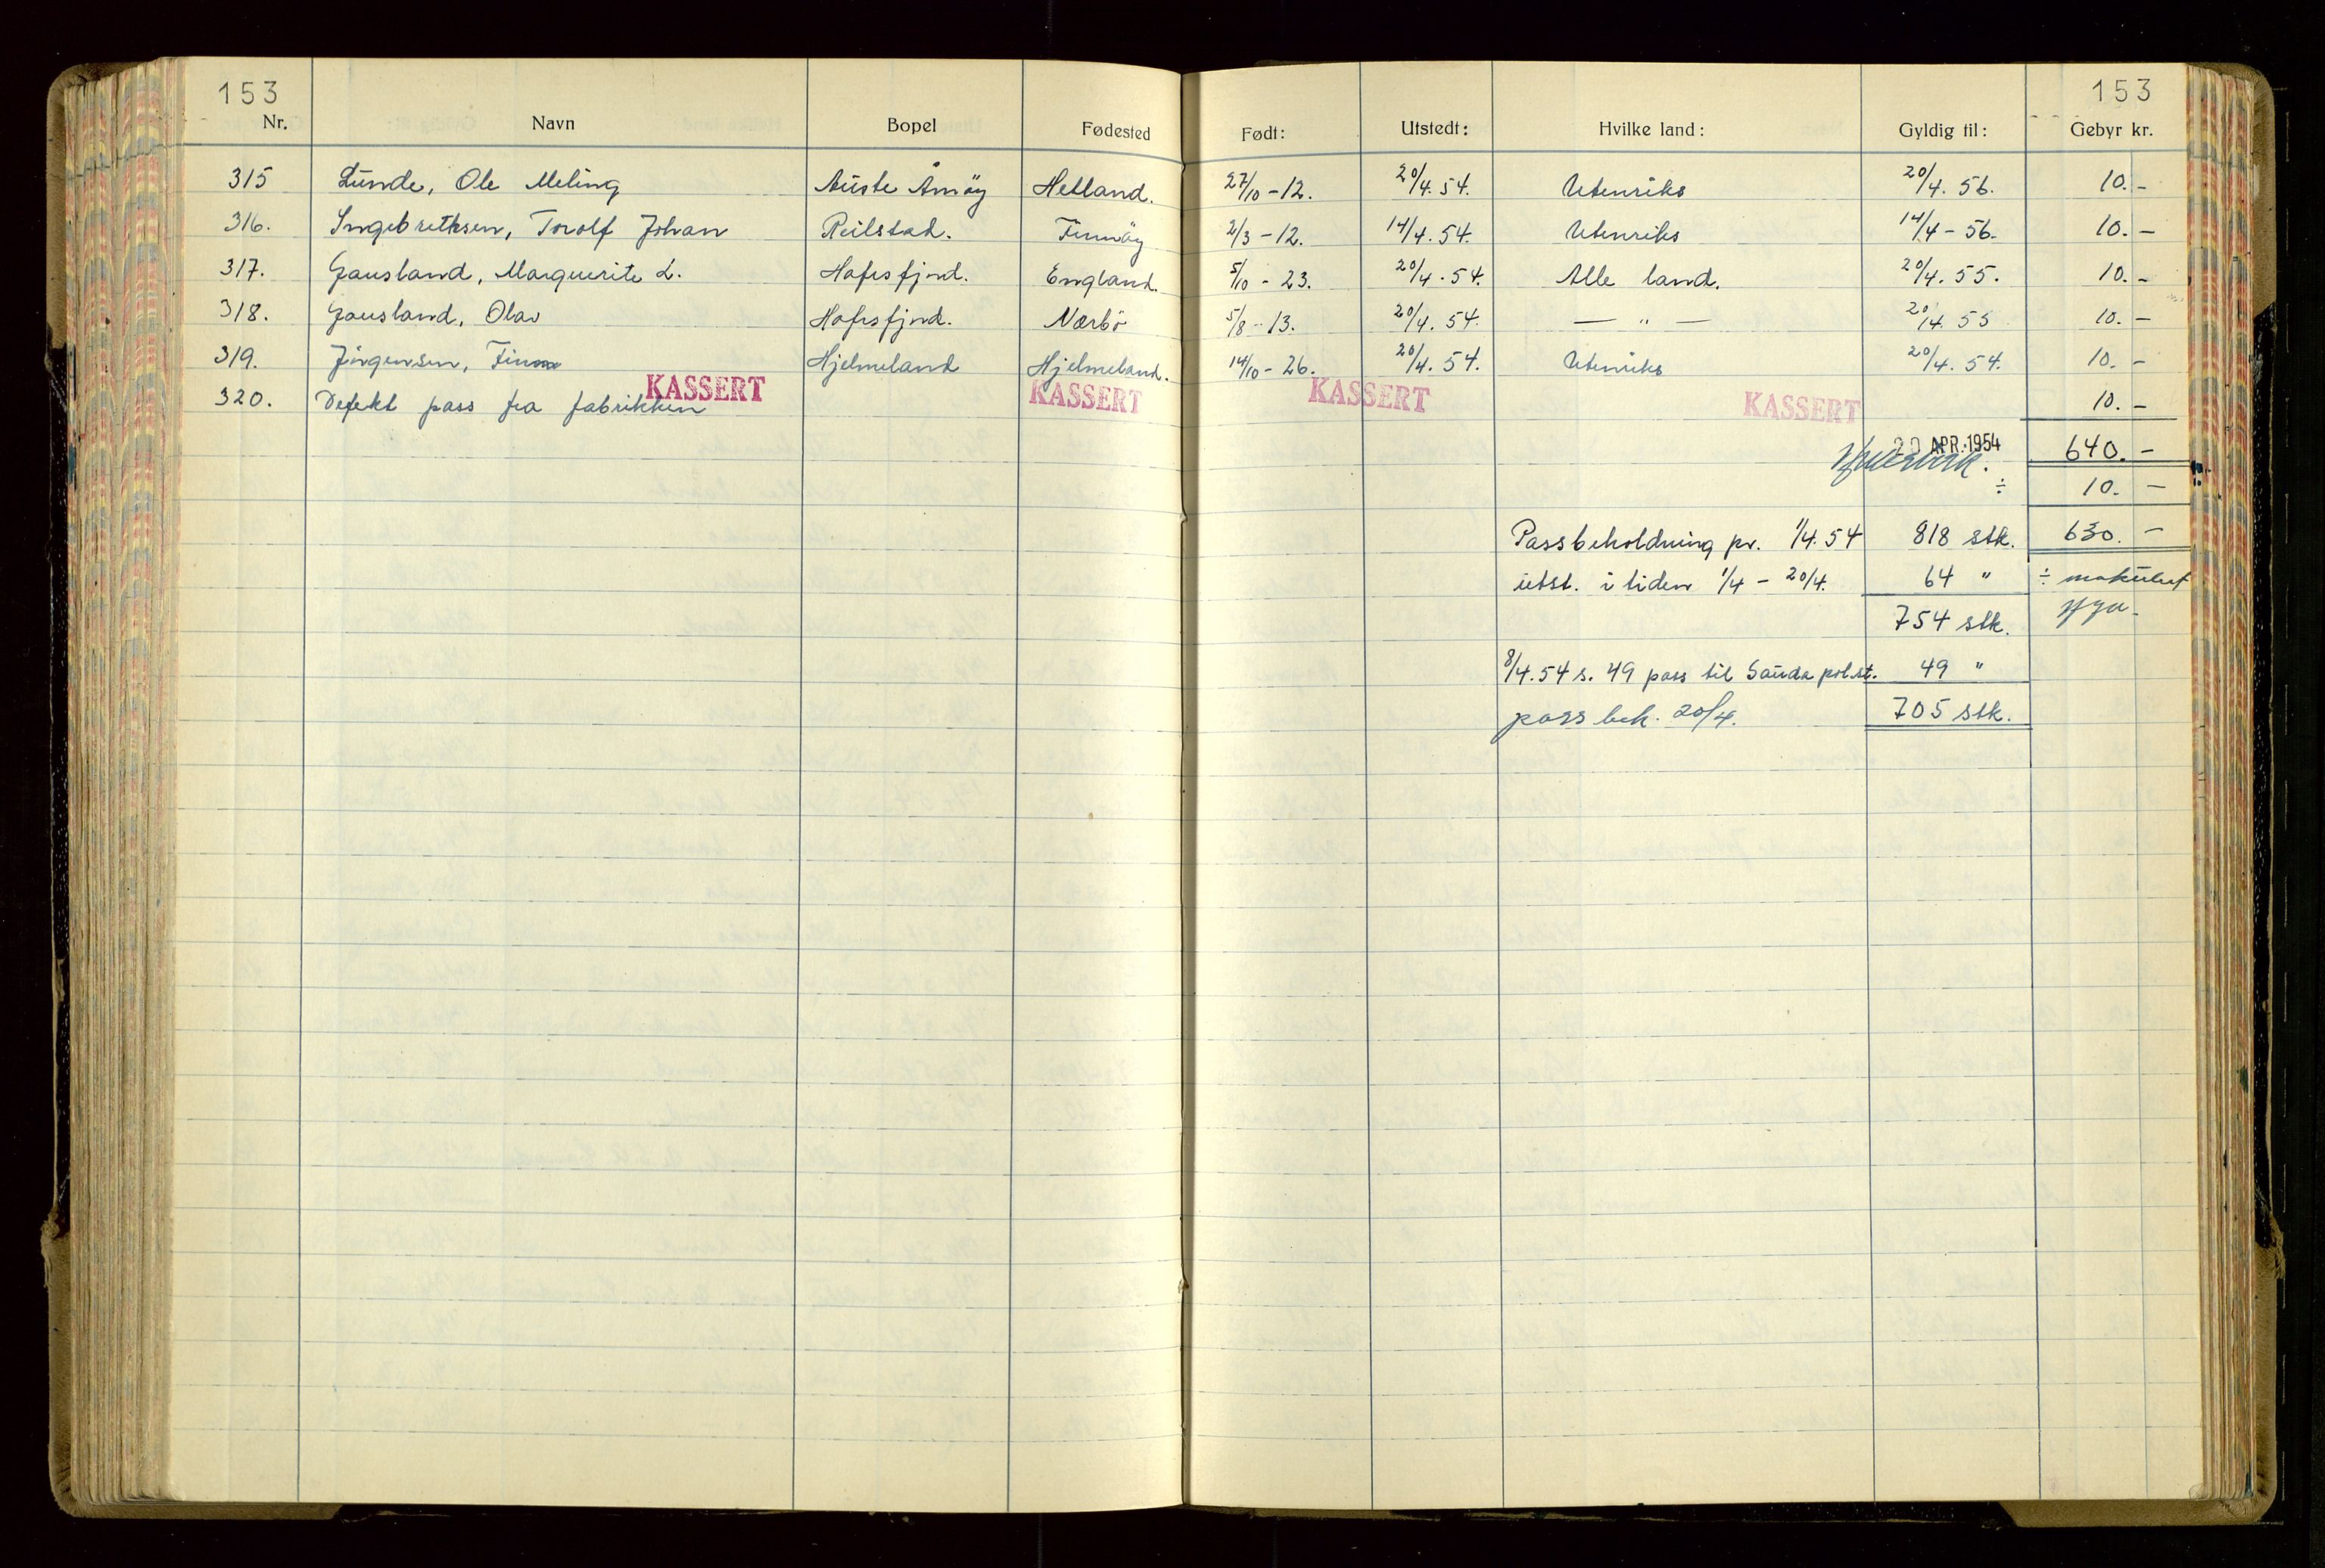 153 153
Nr. Navn Bopel Fødested Født: Utstedt: Hvilke land: Gyldig til: Gebyr kr.
315 Lunde, Ole Meling Auste Åmøy Hetland. 27/10-12. 20/4.54. Utenriks 20/4.56. 10.-
316. Ingebrethsen, Torolf Johan Reilstad. Finnøy 2/3-12. 14/4.54. Utenriks 14/4-56. 10.-
317. Gausland, Marguerite L. Hafrsfjord. England. 5/10-23. 20/4.54. Alle land. 20/4.55. 10.-
318. Gausland, Olav Hafrsfjord. Nærbö 5/8-13. 20/4.54. — " — 20/4.55 10.-
319. Jörgensen, Finn Hjelmeland Hjelmeland. 14/10-26. 20/4.54. Utenriks 20/4.54. 10.-
320. Defekt pass fra fabrikken KASSERT KASSERT KASSERT KASSERT 10.-
APR. 1954 640.-
÷ 10.-
Passbeholdning pr. 1/4.54 818 stk. 630.-
utst. i tiden 1/4 - 20/4. 64 " ÷ makulert
754 stk.
8/4.54 s. 49 pass til Sauda pol.st. 49 "
pass beh. 20/4. 705 stk.